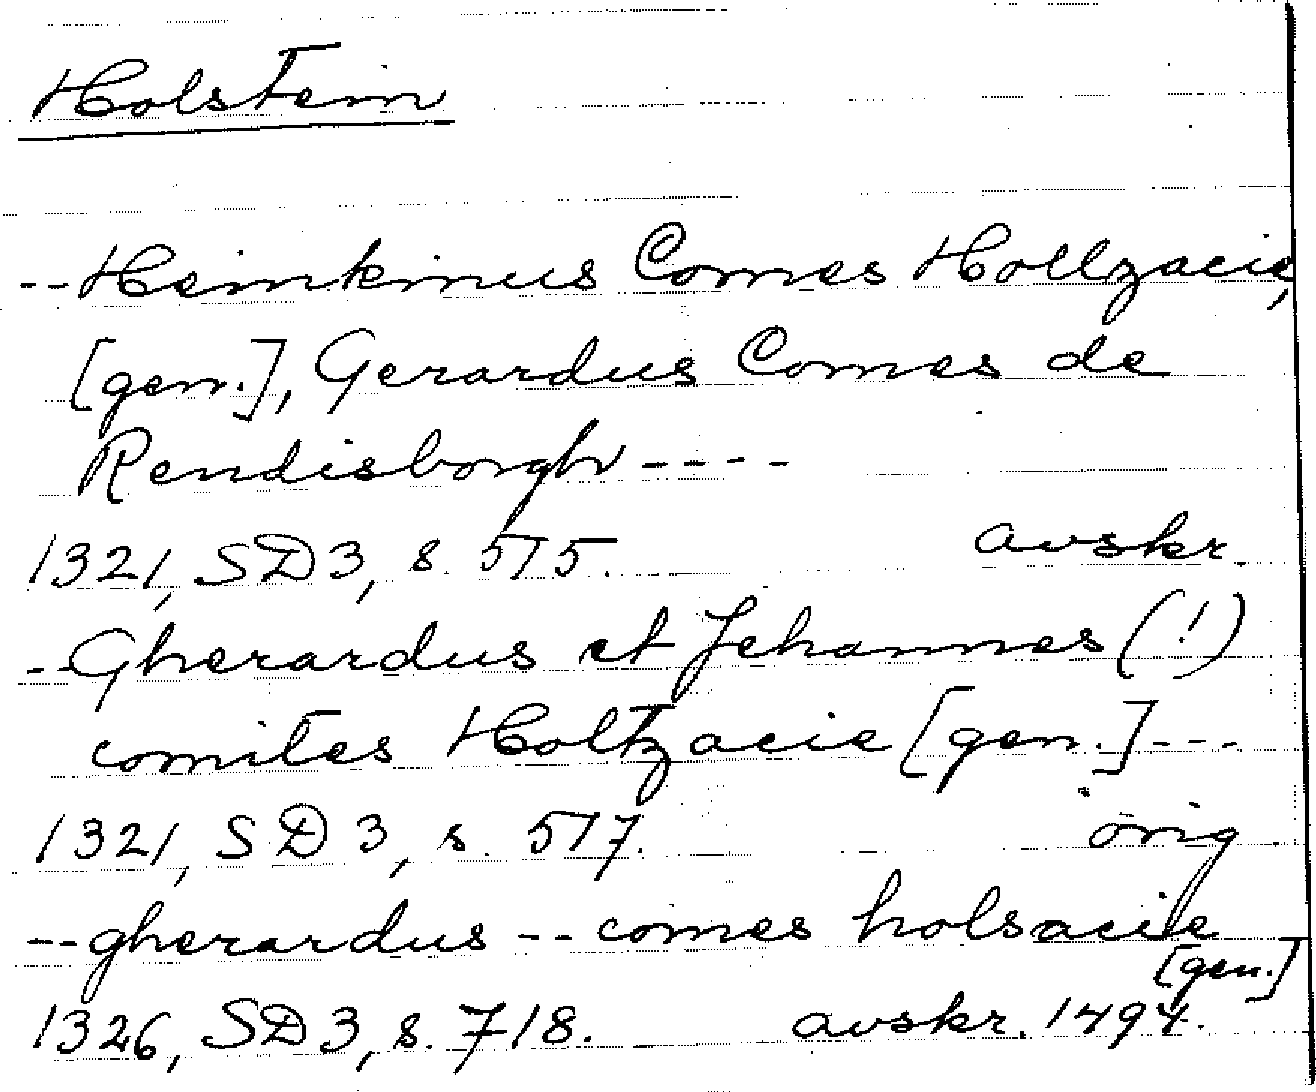 Holstein
--Heinkinus Comes Hollzacie,
[gen.], Gerardus Comes de
Rendisborgh ----
1321, SD3, s. 575. avskr.
--Gherardus et Jehannes (!)
comites Holtzacie [gen.]---
1321, SD3, s. 577. orig
--gherardus -- comes holsacie
[gen.]
1326, SD3, s. 718. avskr. 1494.